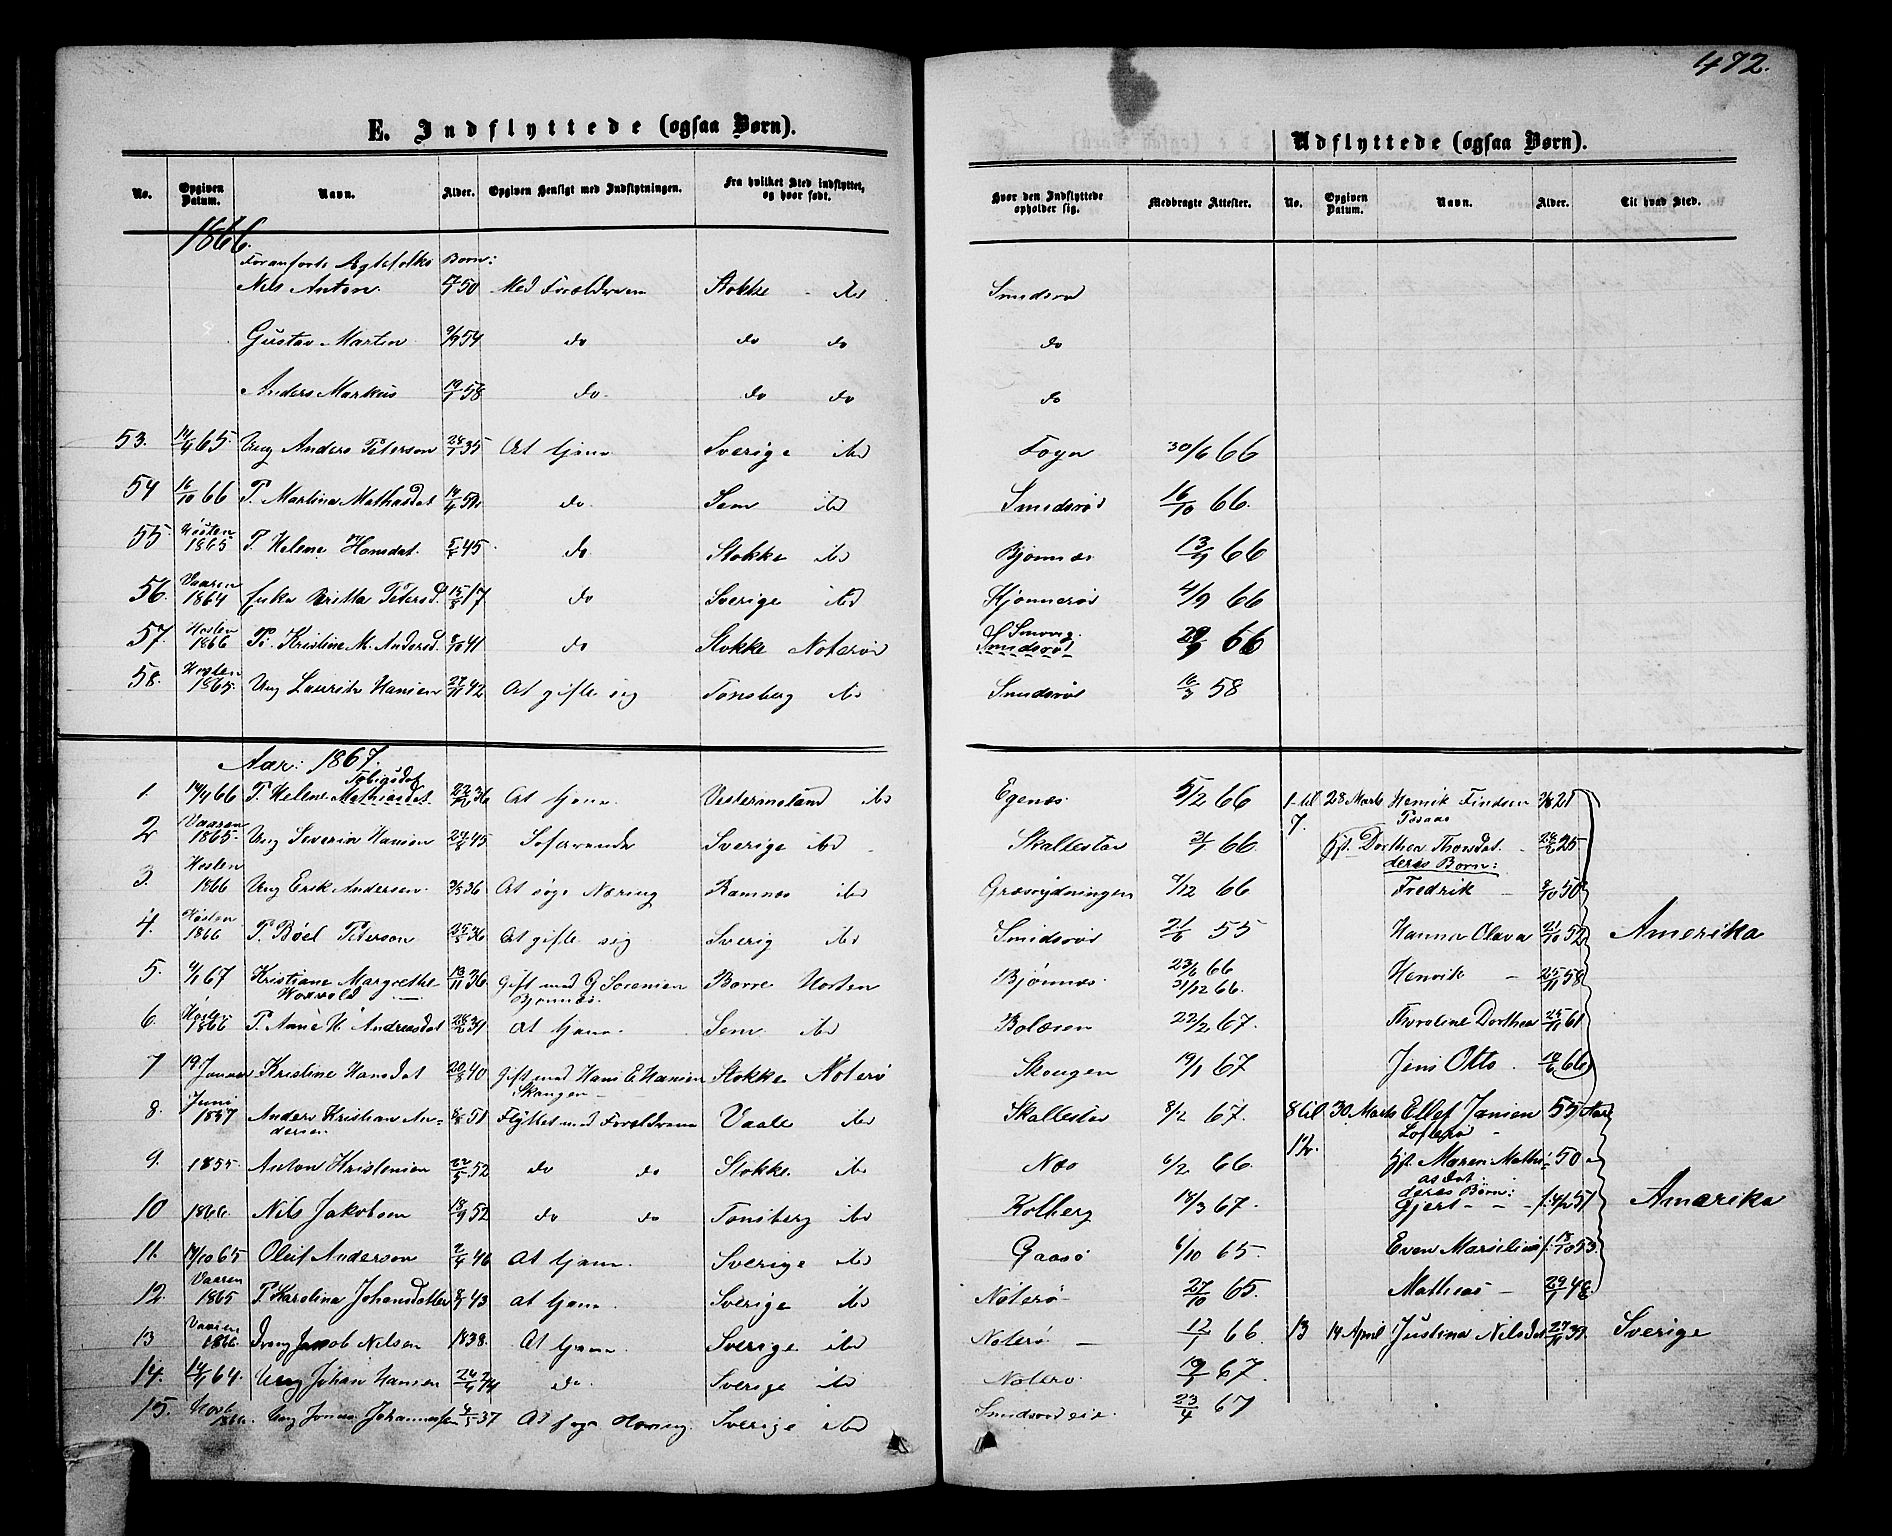 472.
E. Indflyttede (ogsaa Børn).
Udflyttede (ogsaa Børn).
No. Opgiven Datum. Navn. Alder. Opgiven Hensigt med Indflytningen. Fra hvilket Sted indflyttet, og hvor født. Hvor den Indflyttede opholder sig. Medbragte Attester. No. Opgiven Datum. Navn. Alder. Til hvad Sted.
1866.
Foranførte Ægtefolks Børn:
Nils Anton. 50 Med Forældrene Stokke ibd Smidsrød
Gustav Martin 54 do do do do
Anders Markus 19/1 58 do do do do
53. 65. Ung Anders Peterson 35 At tjene Sverige ibd Føyn 30/6 66
54 16/10 66 P. Martina Mathisdat do Sem ibd Smidsrød 16/10 66.
55. Høsten 1865 P. Helene Hansdat. 45. do Stokke ibd Bjønnæs 13/9 66
56. Vaaren 1864 Enke Britta Petersd. 15/8 17 do Sverige ibd Kjønnerød 4/9 66
57. Høsten 1866 P. Kristine M. Andersd. 8/10 41 do Stokke Nøterø Smidsrød 66
58. Høsten 1865. Ung Laurits Hansen 27/11 42 At gifte sig Tønsberg ibd Smidsrød 16/3 58
Aar: 1867.
1. 66 P. Helene Mathiasdat. Tobiasdat 36 At tjene Egenæs. 5/2 66
2 Vaaren 1865. Ung Severin Hansen 45. Søfarende Sverige ibd Skallestad 66.
3. Høsten 1866 Ung Erik Andersen. 36 At søge Næring Ramnes ibd Græsrydningen 7/12 66
4. Høsten 1866 P. Böel Peterson 36 At gifte sig Sverig ibd Smidsrød 55
5. 67 Kristiane Margrethe 13/11 36 Gift med G Sørensen Bjønnæs. Borre Horten Bjønnæs. 23/6 66 31/12 66.
6. Høsten 1866 P. Anne H Andreasdat At tjene Sem ibd Bolæren 22/2 67.
7 19 Januar Kristine Hansdat 20/8 40 Gift med Hans E. Hansen Skougen Stokke Nøterø Skougen 19/1 67
8. Juni 1857 Anders Kristian Andersen 51 Flyttet med Forældrene Vaale ibd Skallestad 8/2 67.
9. 1855. Anton Kristensen 22/5 52 do do Stokke ibd Næs 6/2 66.
10 1866. Nils Jakobsen 18/9 52 do do Tønsberg ibd Kolberg 18/3 67.
11. 65 Oluf Anderson 46 At tjene. Sverige ibd Gaasø 6/10 65.
12. Vaaren 1865 P. Karolina Johansdatter 43 At tjene Sverige ibd Nøterø 27/10 65.
13 Vaaren 1866. Ung Jacob Nilsen 1838. At tjene Sverige ibd Nøterø 12/1 66.
14. 64. Ung Johan Hansen do. Sverige ibd Nøterø 67.
15. 1866. Ung Jonas Johannessen 37 At søge Næring. Sverige ibd Smidsrødeie. 23/4 67
1 til 7. 28 Marts Henrik Findsen 21
Hst. Dorthea Thorsdat. 25
deres Børn:
Fredrik 8/10 50
Hanna Olava 21/10 52 Amerika
Henrik 25/11 58
Thoraline Dorthea 61
Jens Otto. 66
8 til 12. 30 Marts Ellef Jansen 55 Aar
Hst. Maren Mathiasdat 50
deres Børn:
Gjert 51 Amerika
Even Marselius 18/10 53.
Mathias 29/1 48
13 14 April Justina Nilsdat 27/11 39. Sverige